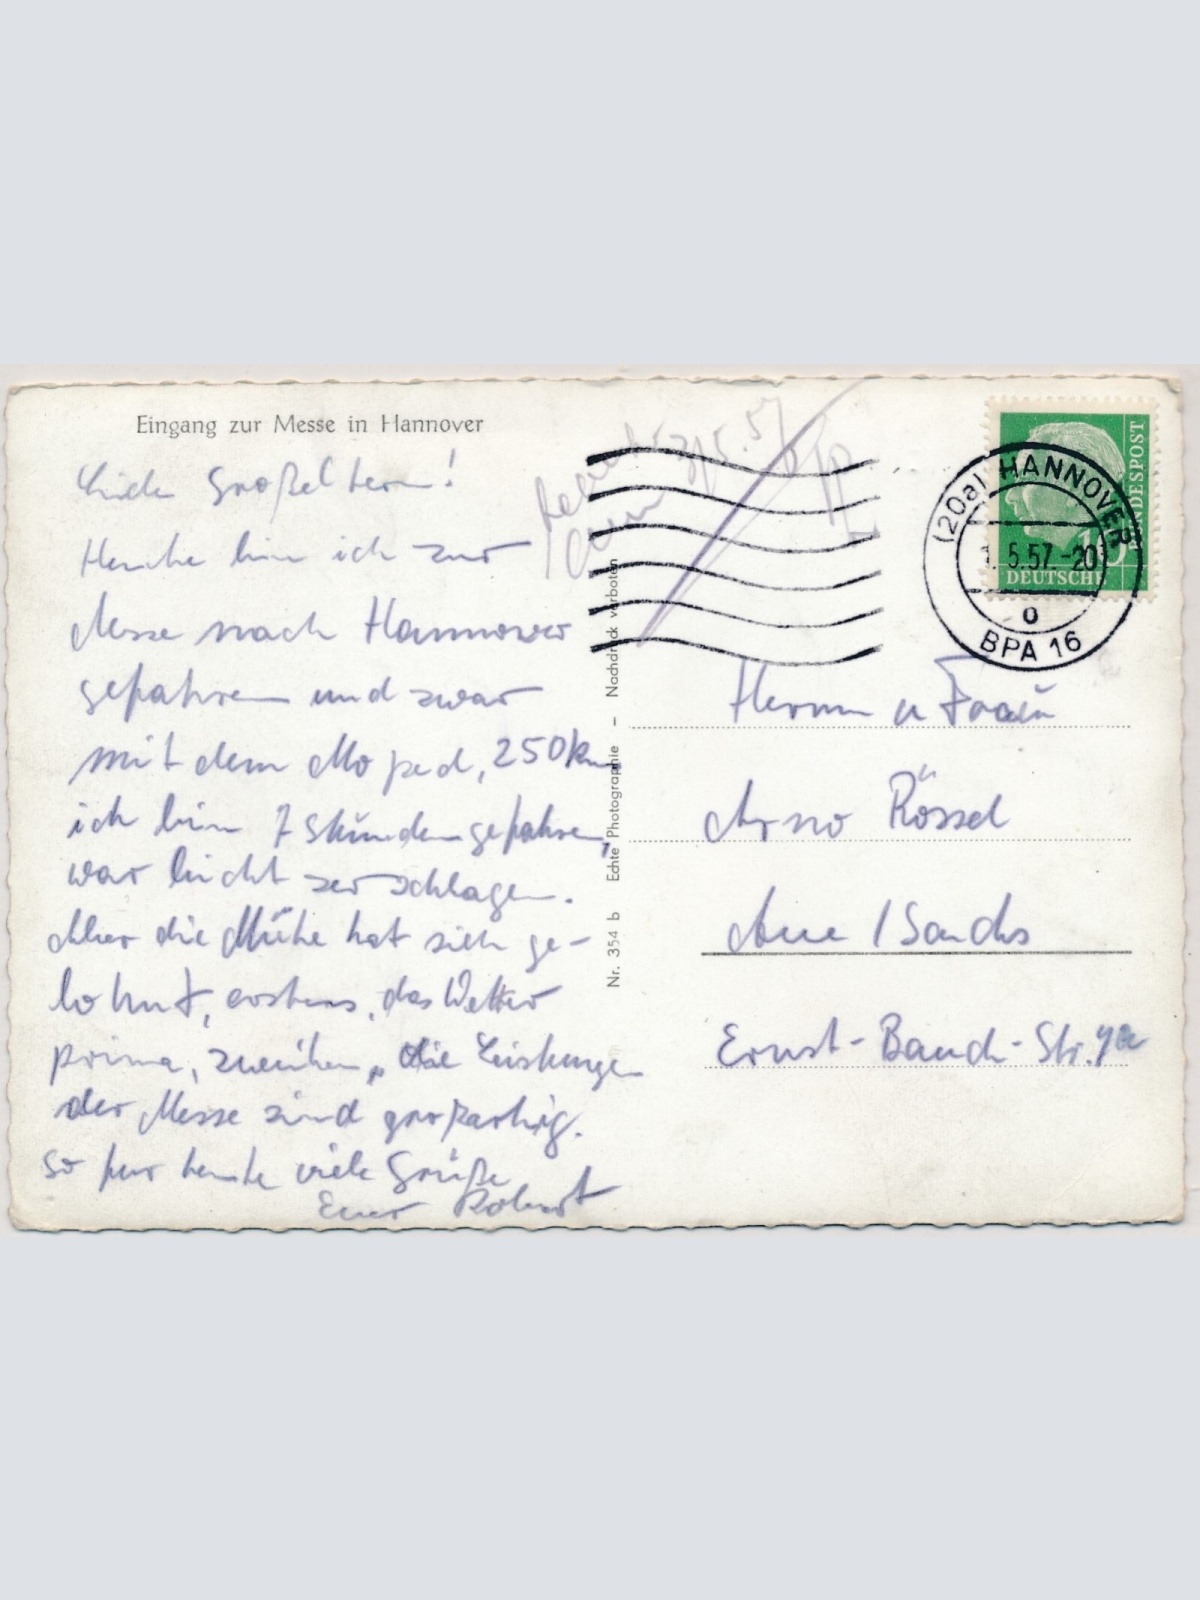 Eingang zur Messe in Hannover
Liebe Großeltern!
Heute bin ich zur
Messe nach Hannover
gefahren und zwar
mit dem Moped, 250km
ich bin 7 Stunden gefahren,
war leicht zerschlagen.
Aber die Mühe hat sich ge-
lohnt, erstens, das Wetter
prima, zweitens, die Leistungen
der Messe sind großartig.
So für heute viele Grüße
Euer Robert
Nr. 354 b Echte Photographie – Nachdruck verboten
5.57
(20a) HANNOVER
1.5.57.-20
o
BPA 16
DEUTSCHE
BUNDESPOST
10
Herrn u Frau
Arno Rössel
Aue / Sachs
Ernst-Bauch-Str.